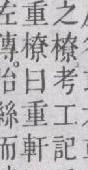 之橑。考工記
重橑曰重軒
左傳。治絲而